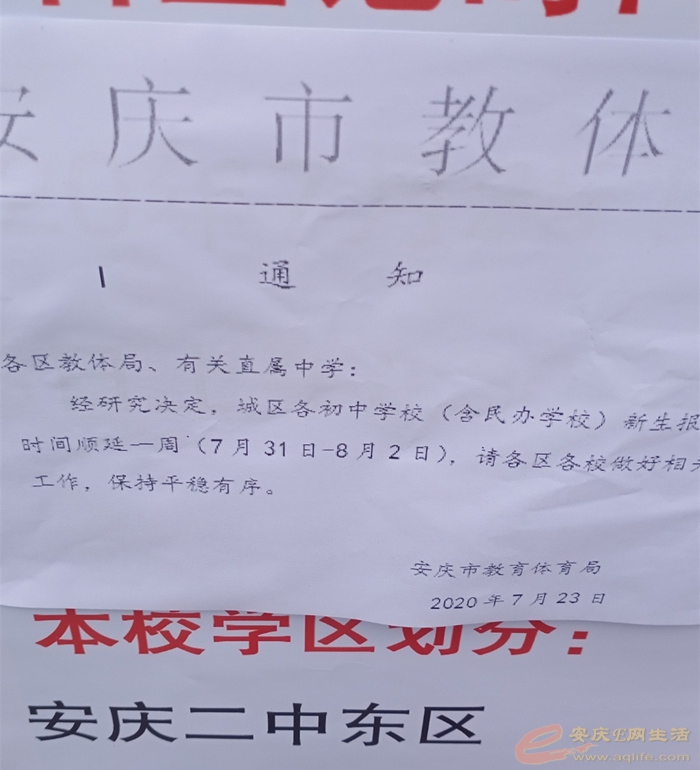 安庆市教体
通知
各区教体局、有关直属中学：
经研究决定，城区各初中学校（含民办学校）新生报
时间顺延一周（7月31日-8月2日），请各区各校做好相关
工作，保持平稳有序。
安庆市教育体育局
2020年7月23日
本校学区划分：
安庆二中东区
安庆E网生活
www.aqlife.com